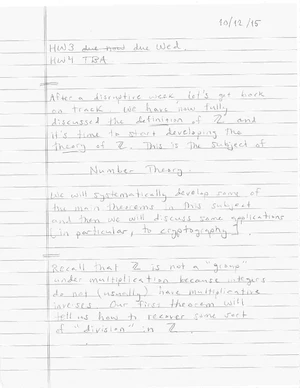 10/12/15
HW3 due now due Wed.
HW4 TBA
After a disruptive week, let's get back
on track. We have now fully
discussed the definition of ℤ and
it's time to start developing the
theory of ℤ. This is the subject of
Number Theory.
We will systematically develop some of
the main theorems in this subject
and then we will discuss some applications
[in particular, to cryptography].
Recall that ℤ is not a "group"
under multiplication because integers
do not (usually) have multiplicative
inverses. Our first theorem will
tell us how to recover some sort
of "division" in ℤ.